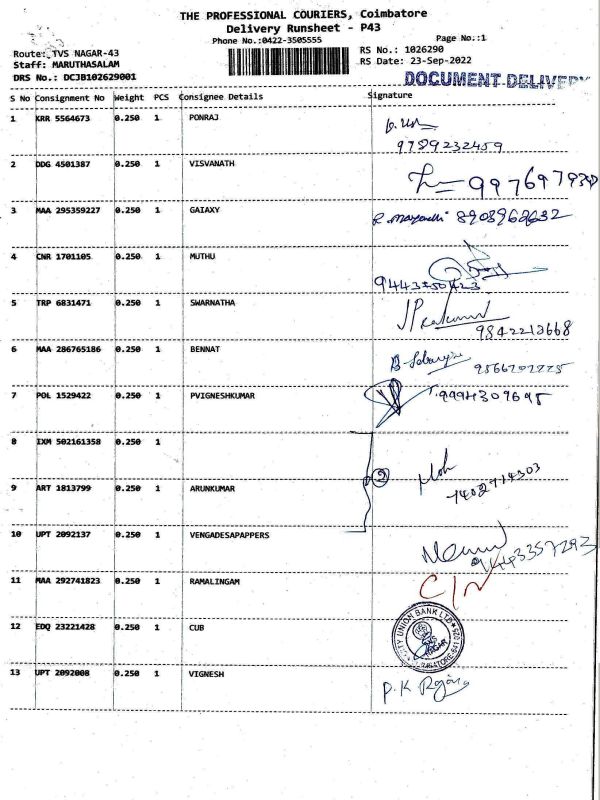 THE PROFESSIONAL COURIERS, Coimbatore
Delivery Runsheet - P43
Phone No.:0422-3505555
Page No.:1
Route: TVS NAGAR-43
RS No.: 1026290
Staff: MARUTHASALAM
RS Date: 23-Sep-2022
DRS No.: DCJB102629001
DOCUMENT DELIVERY
S No Consignment No Weight PCS Consignee Details Signature
1 KRR 5564673 0.250 1 PONRAJ
9789232459
2 DDG 4501387 0.250 1 VISVANATH
3 MAA 295359227 0.250 1 GAIAXY
4 CNR 1701105 0.250 1 MUTHU
5 TRP 6831471 0.250 1 SWARNATHA
9842213668
6 MAA 286765186 0.250 1 BENNAT
7 POL 1529422 0.250 1 PVIGNESHKUMAR
9994309695
8 IXM 502161358 0.250 1
2
9 ART 1813799 0.250 1 ARUNKUMAR
10 UPT 2092137 0.250 1 VENGADESAPAPPERS
11 MAA 292741823 0.250 1 RAMALINGAM
12 EDQ 23221428 0.250 1 CUB
CITY UNION BANK LTD
TVS NAGAR
COIMBATORE-641 025
13 UPT 2092008 0.250 1 VIGNESH